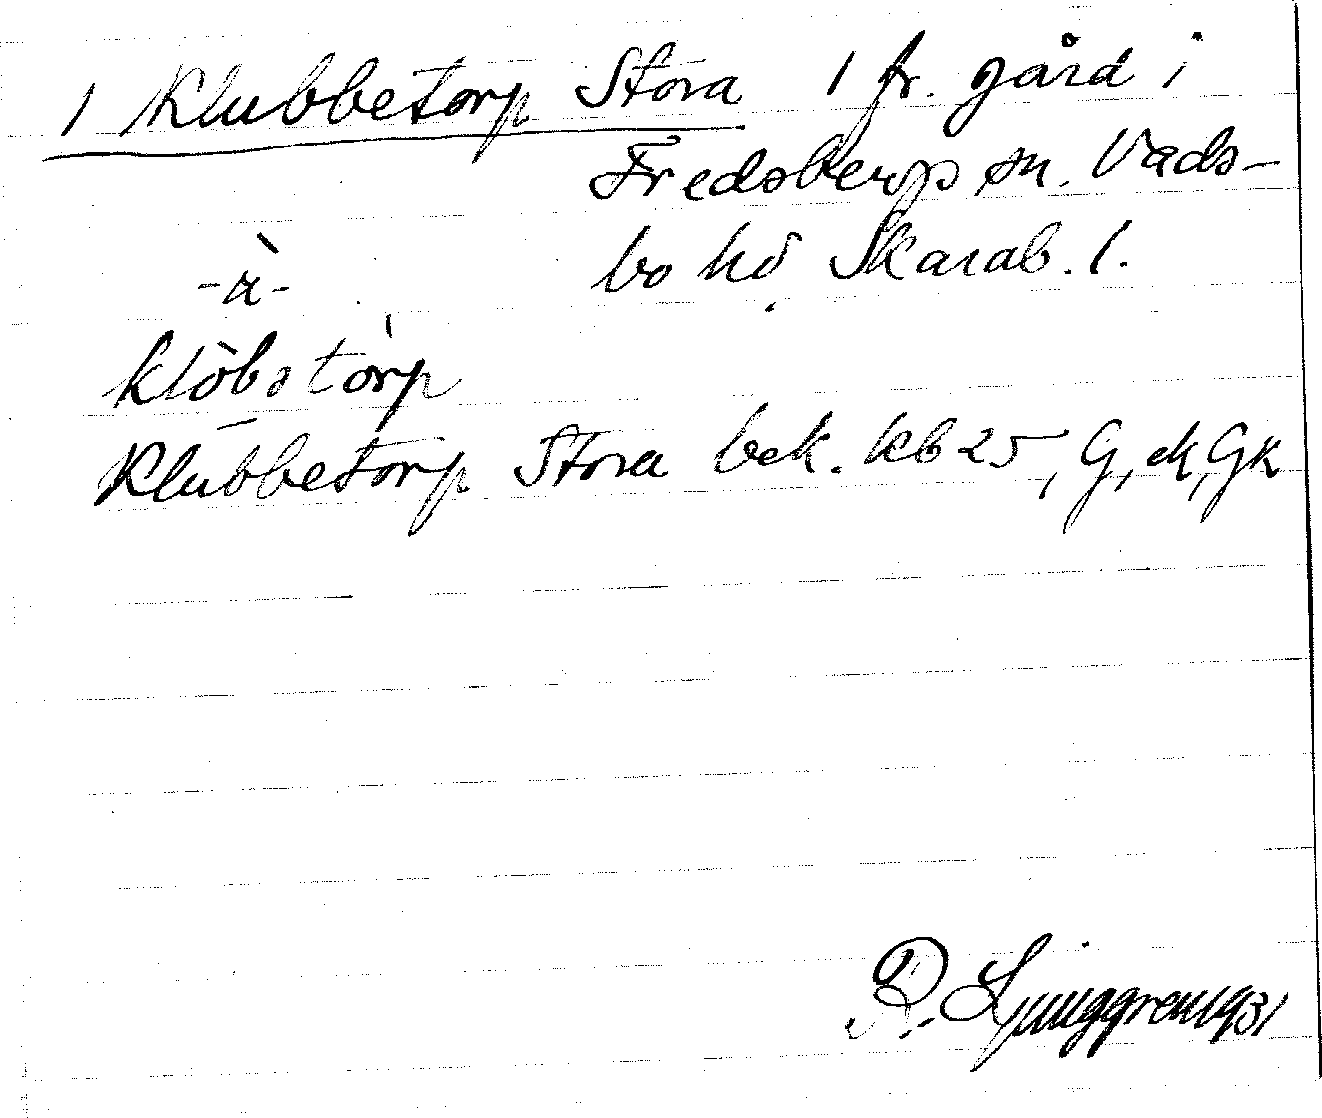 1 Klubbetorp Stora 1 fr. gård i
Fredsbergs sn. Vads-
bo hd Skarab. l.
-à-
klòbstòrp
Klubbetorp Stora bek. kb 25, G, ek, Gk
R. Ljunggren 1931